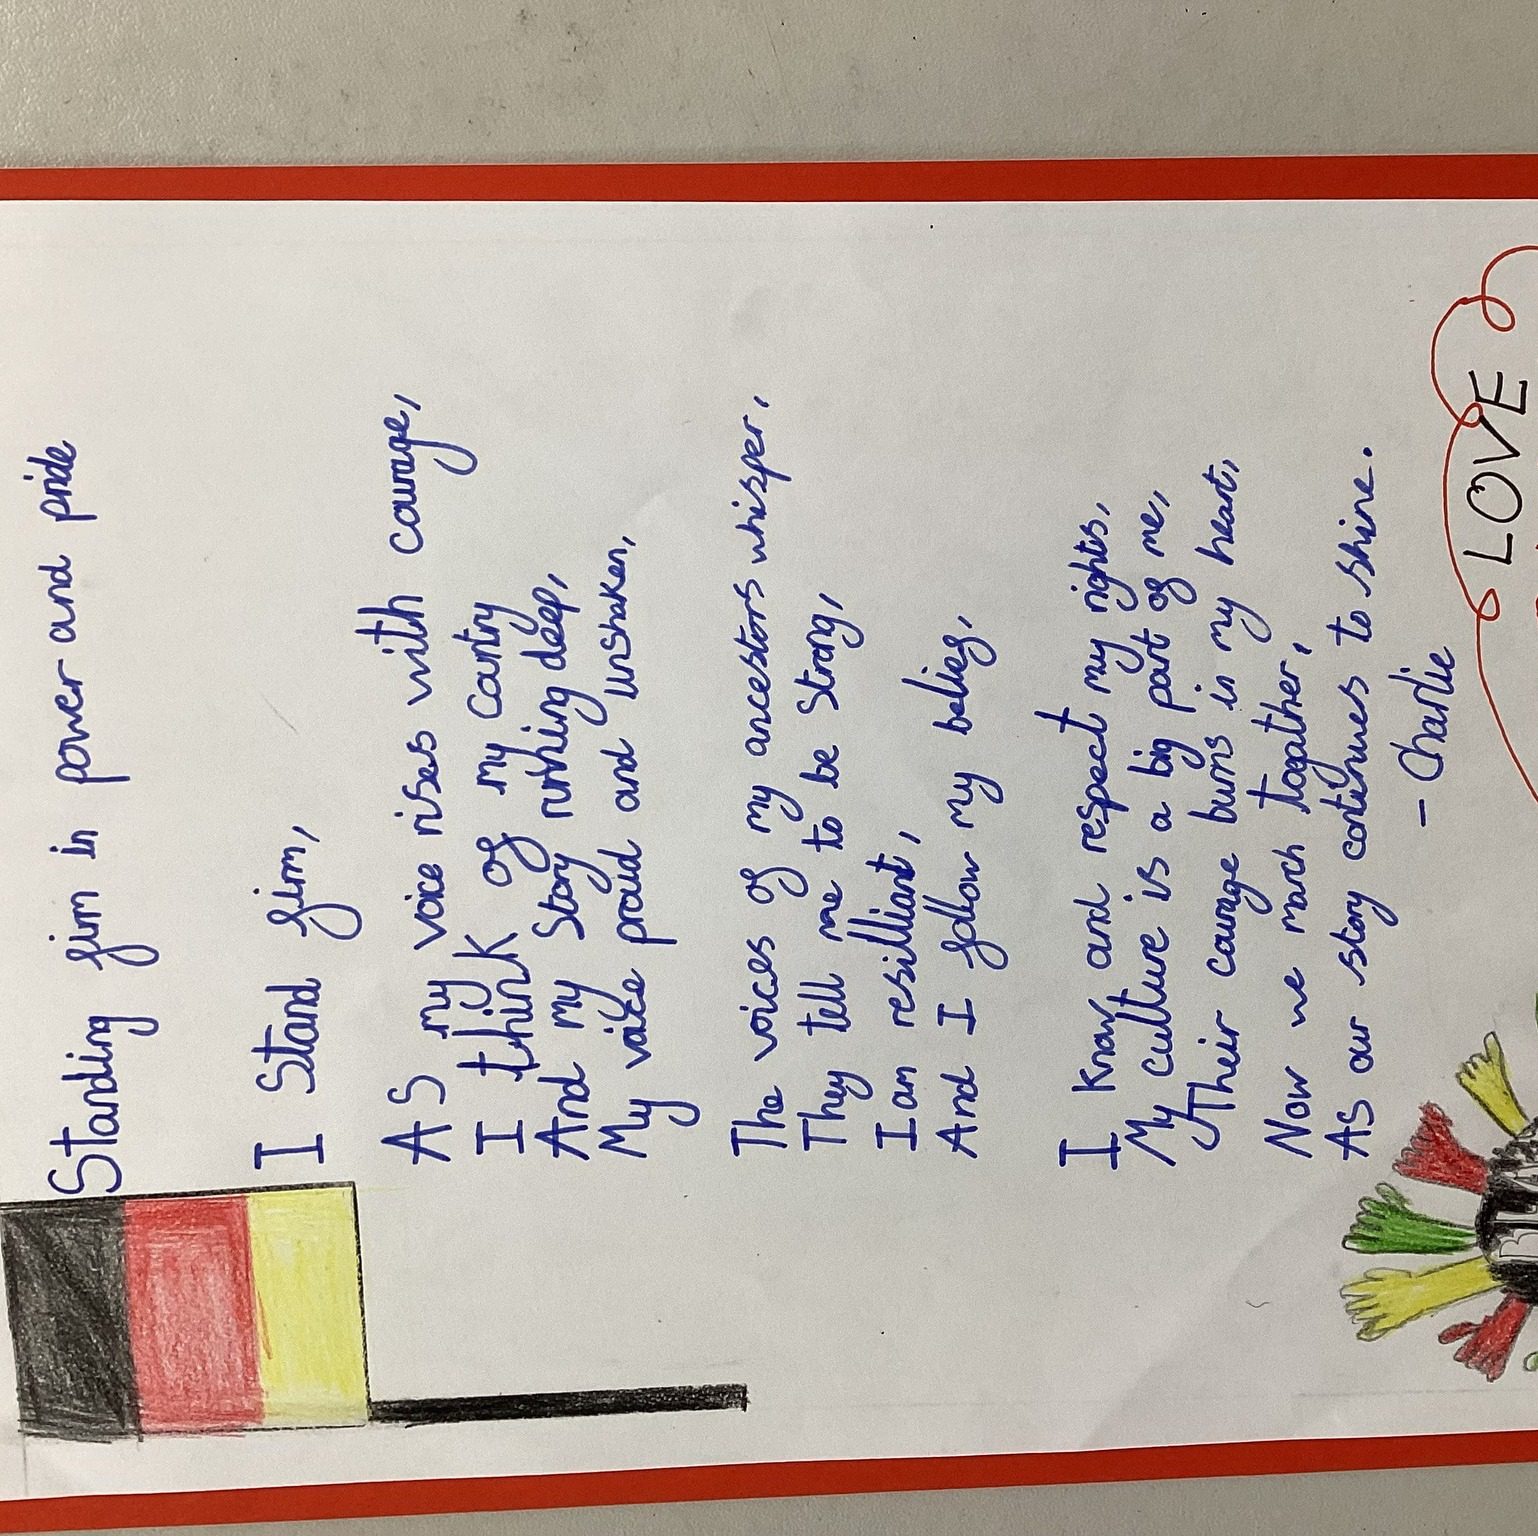 Standing firm in power and pride
I Stand firm,
AS my voice rises with courage,
I think of my cantry
And my Story running deep,
My voice proud and unshaken,
The voices of my ancestors whisper,
They tell me to be Strong,
I am resilliant,
And I follow my belief,
I know and respect my rights,
My culture is a big part of me,
Their courage burns in my heart,
Now we march together,
AS our story continues to shine.
- Charlie
LOVE